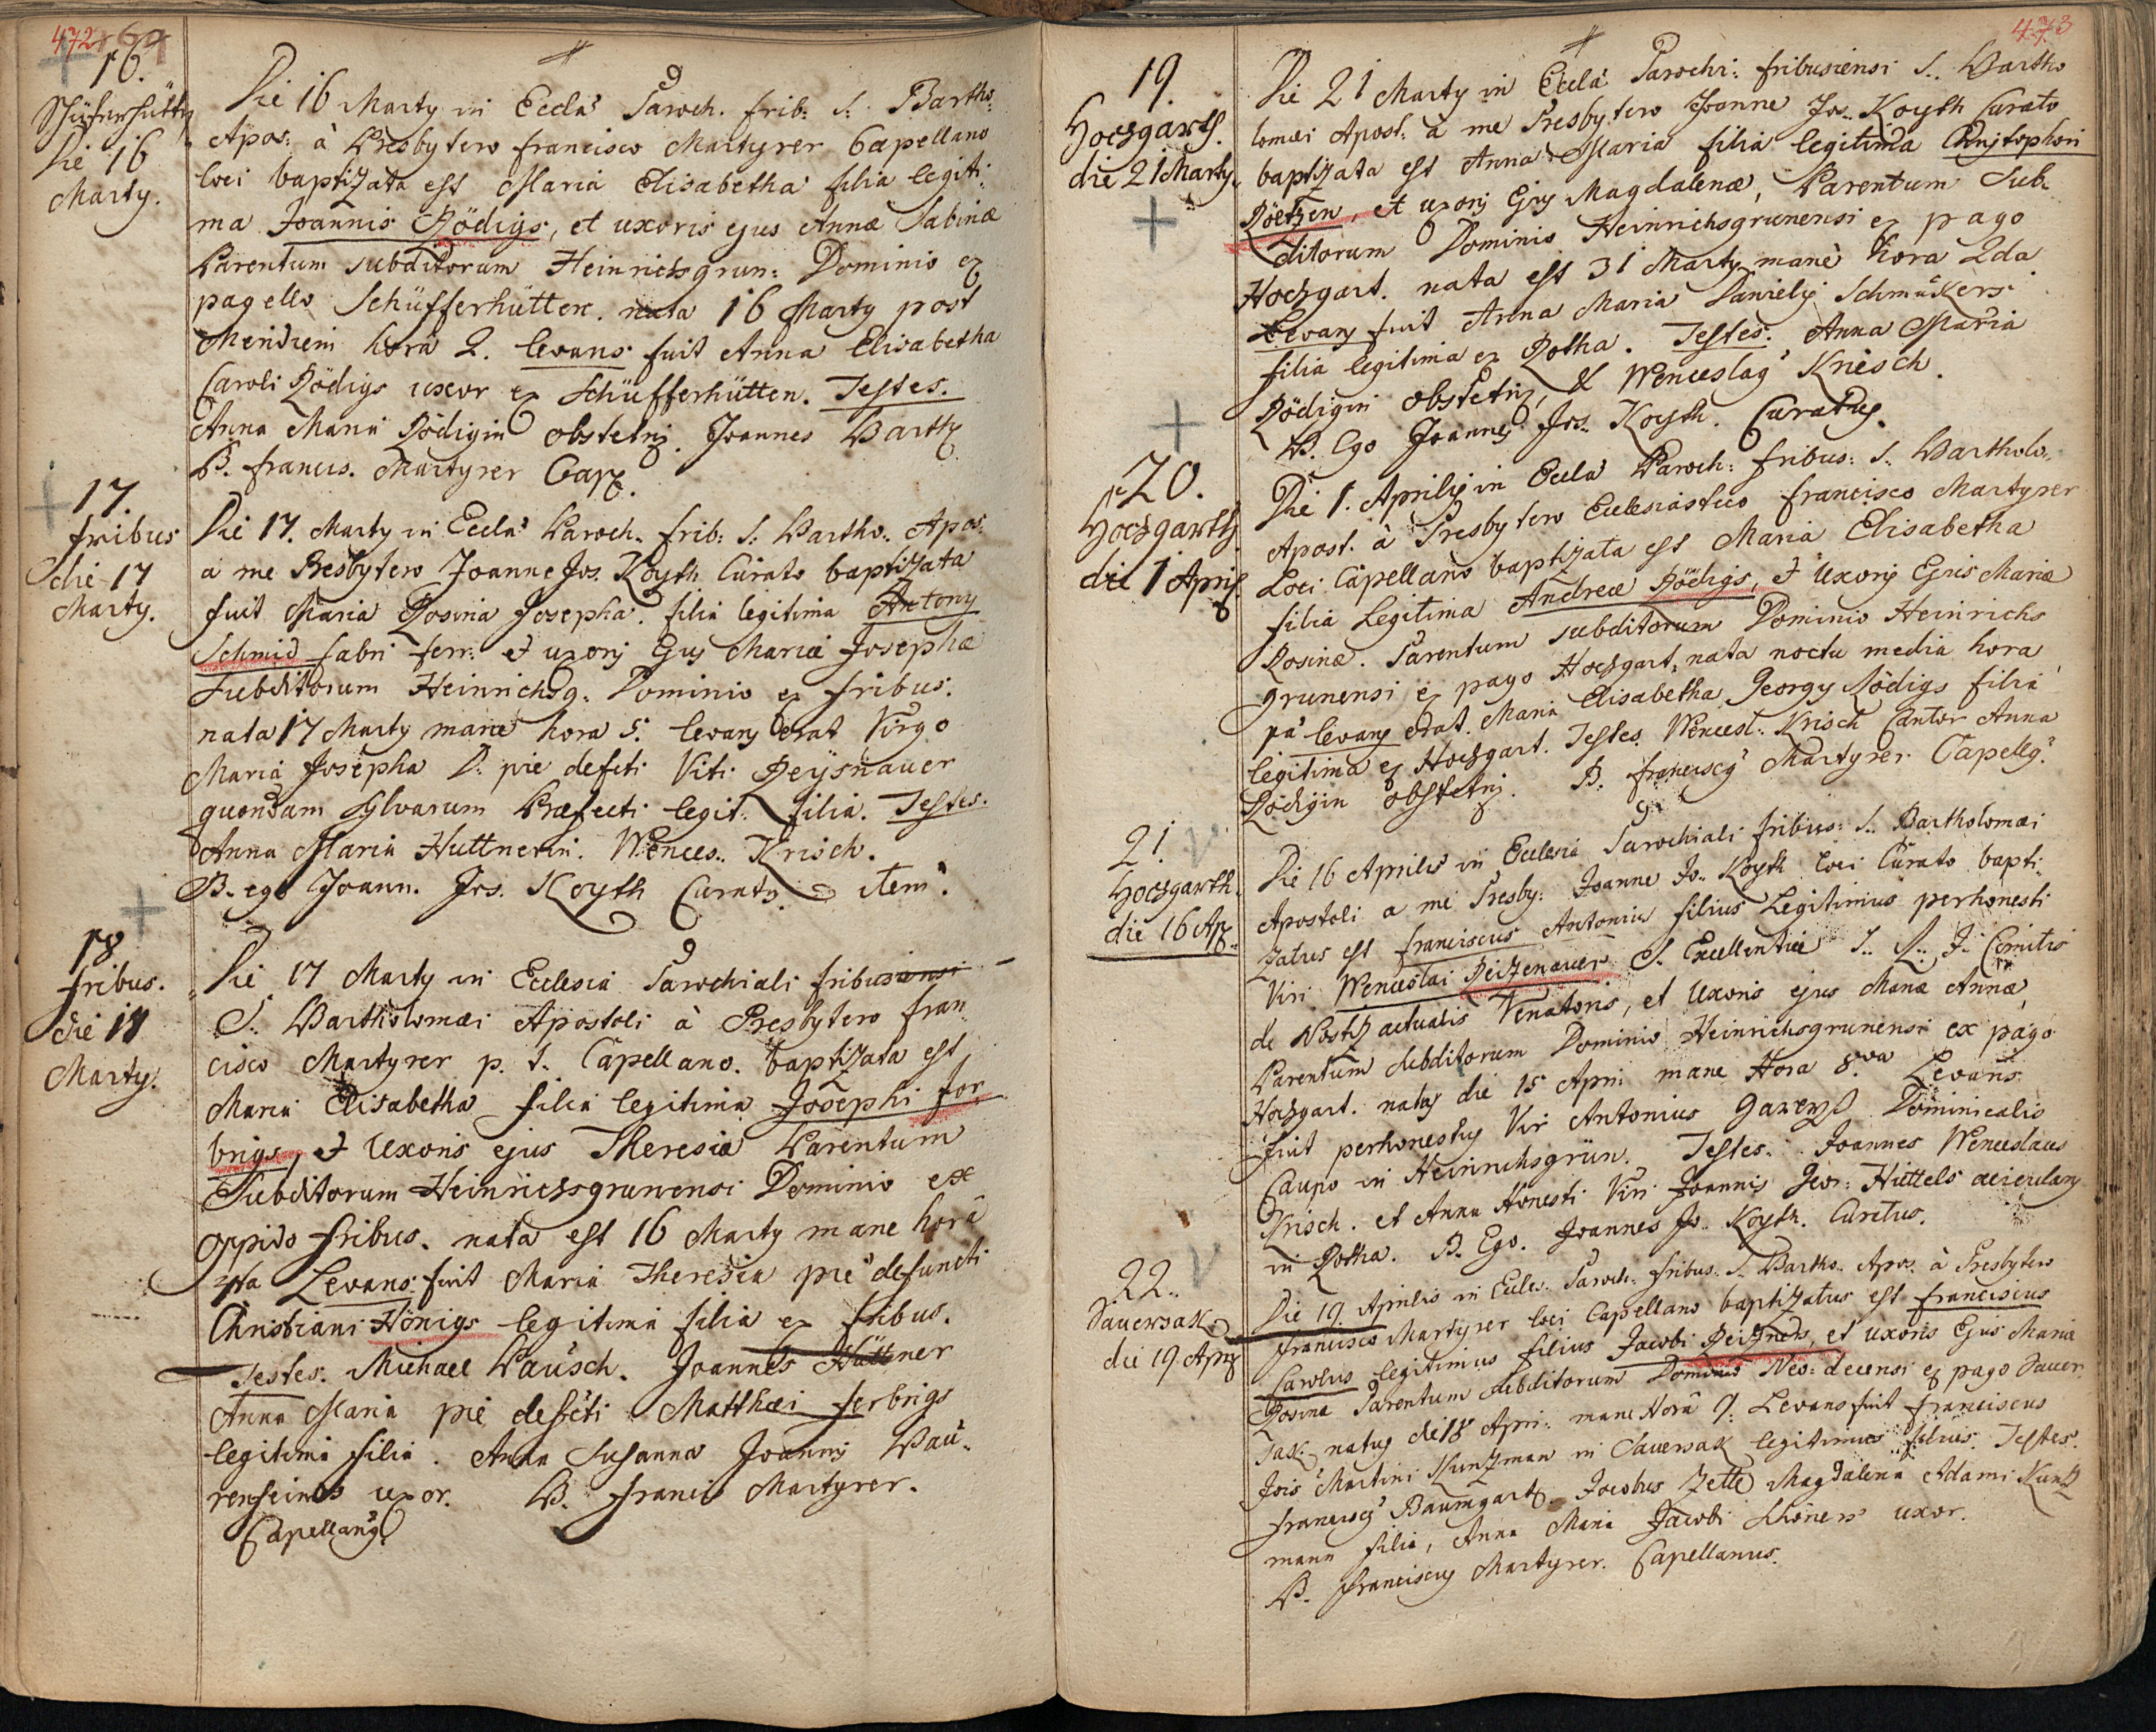 472
169
16.
Schüferhütt
Die 16
Marty.
Die 16 Marty in Eccla Paroch. frib: S: Bartho:
Apos: à Presbytero Francisco Martyrer Capellano
loci baptizata est Maria Elisabetha filia legiti
ma Joannis Rödigs, et uxoris ejus Annæ Sabinæ
Parentum subditorum Heinrichsgrun: Dominio ex
pagello Schüfferhütten. nata 16 Marty post
Meridiem horâ 2. levans fuit Anna Elisabetha
Caroli Rödigs uxor ex Schüfferhütten. Testes.
Anna Maria Rödigin obstetrix. Joannes Barth
B. Francis. Martyrer Cap.
17.
fribus
die 17
Marty.
Die 17. Marty in Eccla Paroch. frib: S: Bartho. Apos:
a me Presbytero Joanne Jos. Koyth Curato baptizata
fuit Maria Rosina Josepha. filia legitima Antony
Schmid fabri ferr: et uxoris Ejus Mariæ Josephæ
Subditorum Heinrichsg. Dominio ex fribus.
nata 17 Marty mane hora 5. levans erat Virgo
Maria Josepha D: pie defcti Viti Reysnauer
quondam Sylvarum Præfecti legit: filia. Testes.
Anna Maria Huttnerin. Wences. Krisch.
B. ego Joann. Jos. Koyth Curatus. item.
18
fribus.
die 18
Marty.
Die 17 Marty in Ecclesia Parochiali fribusiensi
S. Bartholomæi Apostoli à Presbytero Fran
cisco Martyrer p. t. Capellano. baptizata est
Maria Elisabetha filia legitima Josephi for
brigs, et Uxoris ejus Theresiæ Parentum
Subditorum Heinrichsgrunensi Dominio ex
Oppido fribus. nata est 16 Marty mane horâ
4ta Levans fuit Maria Theresia pie defuncti
Christiani Hönigs legitima filia ex fribus.
Testes. Michael Pausch. Joannes Hüttner
Anna Maria pie defcti Matthæi ferbrigs
legitima filia. Anna Susanna Joannis Bau
renfeinds uxor. B. Francis Martyrer.
Capellanus
473
19.
Hochgarth.
die 21 Marty.
Die 21 Marty in Eccla Parochi: fribusiensi S. Bartho
lomæi Apost: à me Presbytero Joanne Jos. Koyth Curato
baptizata est Anna Maria filia legitima Christophori
Röetzen, et uxoris Ejus Magdalenæ, Parentum Sub
ditorum Dominio Heinrichsgrunensi ex pago
Hochgart. nata est 31 Marty manè hora 2da
Levans fuit Anna Maria Danielis Schmukers
filia legitima ex Rotha. Testes. Anna Maria
Rödigin obstetrix, & Wenceslaus Kriesch.
B. Ego Joannes Jos. Koyth. Curatus.
20.
Hochgarth.
die 1 April.
Die 1. Aprilis in Eccla Paroch: fribus: S. Bartholo
Apost. à Presbytero Ecclesiastico Francisco Martyrer
Loci Capellano baptizata est Maria Elisabetha
filia Legitima Andreæ Rödigs, et Uxoris Ejus Mariæ
Rosinæ. Parentum subditorum Dominio Heinrichs
grunensi ex pago Hochgart, nata noctu media hora
pa levans erat. Maria Elisabetha Georgy Rödigs filia
legitima ex Hochgart. Testes. Wencesl. Krisch Cantor Anna
Rödigin obstetrix. B. Franciscus Martyrer Capellg.
21.
Hochgarth.
die 16 Ap.
Die 16 Aprilis in Ecclesia Parochiali fribus: S. Bartholomæi
Apostoli a me Presby: Joanne Jo. Koyth loci Curato bapti
zatus est Franciscus Antonius filius Legitimus perhonesti
Viri Wenceslai Reitzenauer S. Excellentiæ S. R. J. Comitis
de Nostiz actualis Venatoris, et Uxoris ejus Mariæ Annæ,
Parentum subditorum Dominio Heinrichsgrunensi ex pago
Hochgart. natus die 15 Apri: mane Hora 8.va Levans
fuit perhonestus Vir Antonius Gareys Dominicalis
Caupo in Heinrichsgrün. Testes. Joannes Wenceslaus
Krisch. et Anna Honesti Viri Joannis Geor: Hüttels acicularij
in Rotha. B. Ego. Joannes Jo. Koyth. Curatus.
22.
Sauersak
die 19. Apri
Die 19. Aprilis in Eccles. Paroch. fribus. S. Bartho. Apos. à Presbytero
Francisco Martyrer loci Capellano baptizatus est Franciscus
Carolus legitimus filius Jacobi Reitzners, et uxoris Ejus Mariæ
Rosinæ Parentum subditorum Dominio Neo: decensi ex pago Sauer
sak. natus die 18 Apri: mane Horâ 9. Levans fuit Franciscus
Jois Martini Kuntzman in Sauersak legitimus filius. Testes.
Franciscus Baumgartl. Jacobus Zettl Magdalena Adami Kuntz
mann filia, Anna Maria Jacobi Schöners uxor.
B. Franciscus Martyrer. Capellanus.